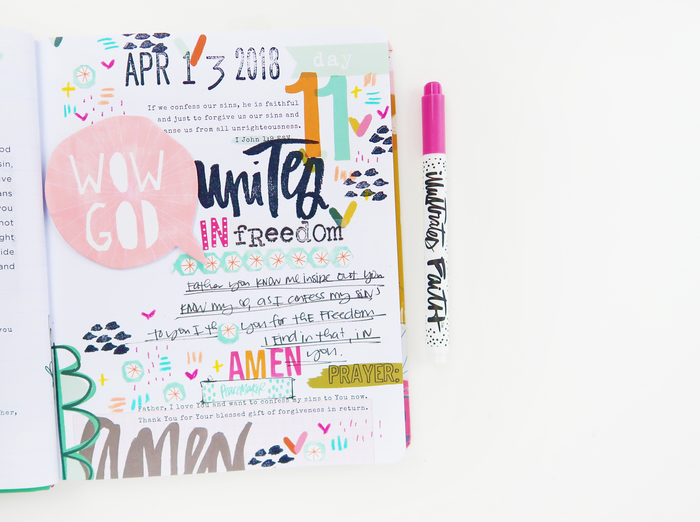 APR 13 2018
day
11
If we confess our sins, he is faithful
and just to forgive us our sins and
us from all unrighteousness.
I John 1:9
WOW
GOD
uniTed
IN freedom
Father you know me inside out you
know my as I confess my sins
to you I you for the freedom
I find in that, in
you.
AMEN
PRAYER:
PEACEMAKER
Father, I love You and want to confess my sins to You now.
Thank You for Your blessed gift of forgiveness in return.
Amen
illustrated Faith
od
sin,
ive
ans
you
not
ght
ide
and
you
her,